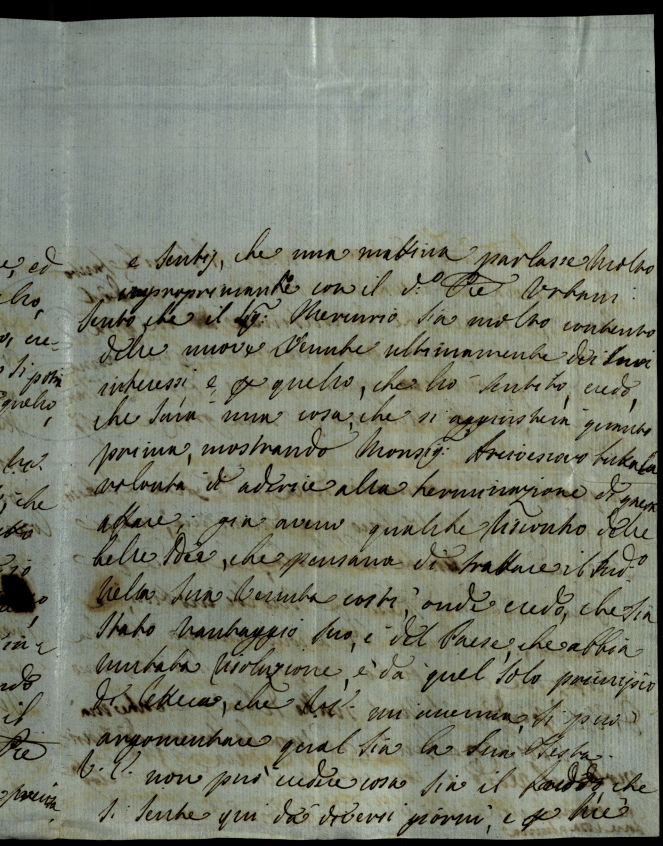 e sentij, che una mattina parlasse molto
impropriamente con il d.º Prè Urbani
sento che il Sig.r Mercurio sia molto contento
delle nuove Venute ultimamente dei suoi
interessi, e p quello, che hò sentito, credo,
che sara una cosa, che si aggiusterà quanto
prima, mostrando Monsig.r Arcivescovo tutta la
volontà di aderire alla terminazione di questo
affare; già avevo qualche riscontro delle
belle Idee, che pensava di trattare il sud.º
nella sua Venuta costì, onde credo, che sia
stato vantaggio suo, e del Paese, che abbia
mutata risoluzione, e da quel solo principio
di lettera, che mi accenna, si può
argomentare qual sia la sua testa.
V. S. non può credere cosa sia il freddo, che
si sente qui da diversi giorni, e p trè
e, ed
llo,
cre-
si potrà
quello,
che
il
Prè